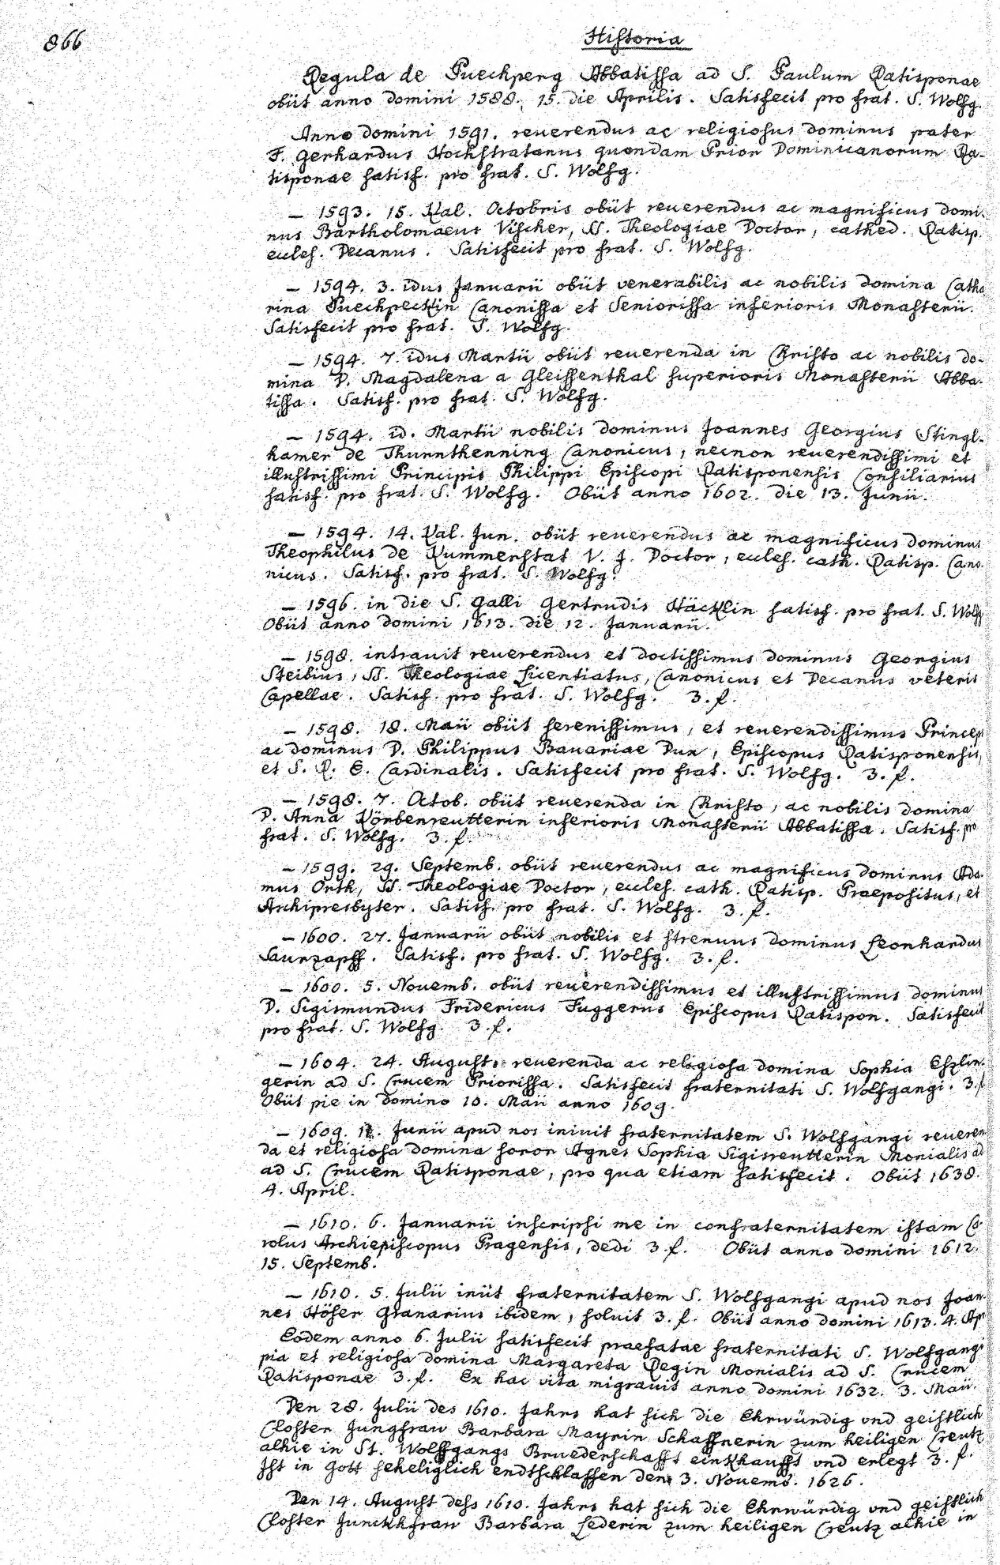 866
Historia
Regula de Pueckperg Abbatissa ad S. Paulum Ratisponae
obiit anno domini 1588. 15. die Aprilis. Satisfecit pro frat. S. Wolfg.
Anno domini 1591. reuerendus ac religiosus dominus pater
F. Gerhardus Hochstratanus quondam Prior Dominicanorum Ra-
tisponae satisf. pro frat. S. Wolfg.
– 1593. 15. Kal. Octobris obiit reuerendus ac magnificus domi-
nus Bartholomaeus Vischer, SS. Theologiae Doctor, cathed. Ratisp.
eccles. Decanus. Satisfecit pro frat. S. Wolfg.
– 1594. 3. idus Januarii obiit venerabilis ac nobilis domina Catha
rina Pueckpeckin Canonissa et Seniorissa inferioris Monasterii.
Satisfecit pro frat. S. Wolfg.
– 1594. 7. idus Martii obiit reuerenda in Christo ac nobilis do-
mina D. Magdalena a Gleissenthal superioris Monasterii Abba-
tissa. Satisf. pro frat. S. Wolfg.
– 1594. id. Martii nobilis dominus Joannes Georgius Stingl-
hamer de Thurnthenning Canonicus, necnon reuerendissimi et
illustrissimi Principis Philippi Episcopi Ratisponensis Consiliarius
satisf. pro frat. S. Wolfg. Obiit anno 1602. die 13. Junii.
– 1594. 14. Kal. Jun. obiit reuerendus ac magnificus dominus
Theophilus de Kummerstat V. J. Doctor, eccles. cath. Ratisp. Cano
nicus. Satisf. pro frat. S. Wolfg.
– 1596. in die S. Galli Gertrudis Häcklin satisf. pro frat. S. Wolfg
Obiit anno domini 1613. die 12. Januarii.
– 1598. intrauit reuerendus et doctissimus dominus Georgius
Steibius, SS. Theologiae Licentiatus, Canonicus et Decanus veteris
Capellae. Satisf. pro frat. S. Wolfg. 3. f.
– 1598. 18. Maii obiit serenissimus, et reuerendissimus Princeps
ac dominus D. Philippus Bauariae Dux, Episcopus Ratisponensis,
et S. R. E. Cardinalis. Satisfecit pro frat. S. Wolfg. 3. f.
– 1598. 7. Octob. obiit reuerenda in Christo, ac nobilis domina
D. Anna Körbenreutterin inferioris Monasterii Abbatissa. Satisf. pro
frat. S. Wolfg. 3. f.
– 1599. 29. Septemb. obiit reuerendus ac magnificus dominus Ada-
mus Orth, SS. Theologiae Doctor, eccles. cath. Ratisp. Praepositus, et
Archipresbyter. Satisf. pro frat. S. Wolfg. 3. f.
– 1600. 27. Januarii obiit nobilis et strenuus dominus Leonhardus
Saurzapff. Satisf. pro frat. S. Wolfg. 3. f.
– 1600. 5. Nouemb. obiit reuerendissimus et illustrissimus dominus
D. Sigismundus Fridericus Fuggerus Episcopus Ratispon. Satisfecit
pro frat. S. Wolfg. 3. f.
– 1604. 24. August. reuerenda ac religiosa domina Sophia Eszlin-
gerin ad S. Crucem Priorissa. Satisfecit fraternitati S. Wolfgangi. 3. f
Obiit pie in domino 10. Maii anno 1609.
– 1609. Junii apud nos iniuit fraternitatem S. Wolfgangi reueren
da et religiosa domina soror Agnes Sophia Sigisreutterin Monialis ad
ad S. Crucem Ratisponae, pro qua etiam satisfecit. Obiit 1638.
4. April.
– 1610. 6. Januarii inscripsi me in confraternitatem istam Ca
rolus Archiepiscopus Pragensis, dedi 3. f. Obiit anno domini 1612.
15. Septemb.
– 1610. 5. Julii iniit fraternitatem S. Wolfgangi apud nos Joan-
nes Höser Granarius ibidem, soluit 3. f. Obiit anno domini 1613. 4. Ap
Eodem anno 6. Julii satisfecit praefatae fraternitati S. Wolfgangi
pia et religiosa domina Margareta Regin Monialis ad S. Crucem
Ratisponae 3. f. Ex hac vita migrauit anno domini 1632. 3. Maii.
Den 28. Julii des 1610. Jahrs hat sich die Ehrwürdig vnd geistlich
Closter Jungfraw Barbara Mayrin Schaffnerin zum heiligen Creutz
alhie in St. Wolffgangs Bruederschafft einkhaufft vnd erlegt 3. f.
Ist in Gott seheliglich endtschlaffen den 3. Nouemb. 1626.
Den 14. August dess 1610. Jahrs hat sich die Ehrwürdig vnd geistlich
Closter Junckhfraw Barbara Lederin zum heiligen Creutz alhie in